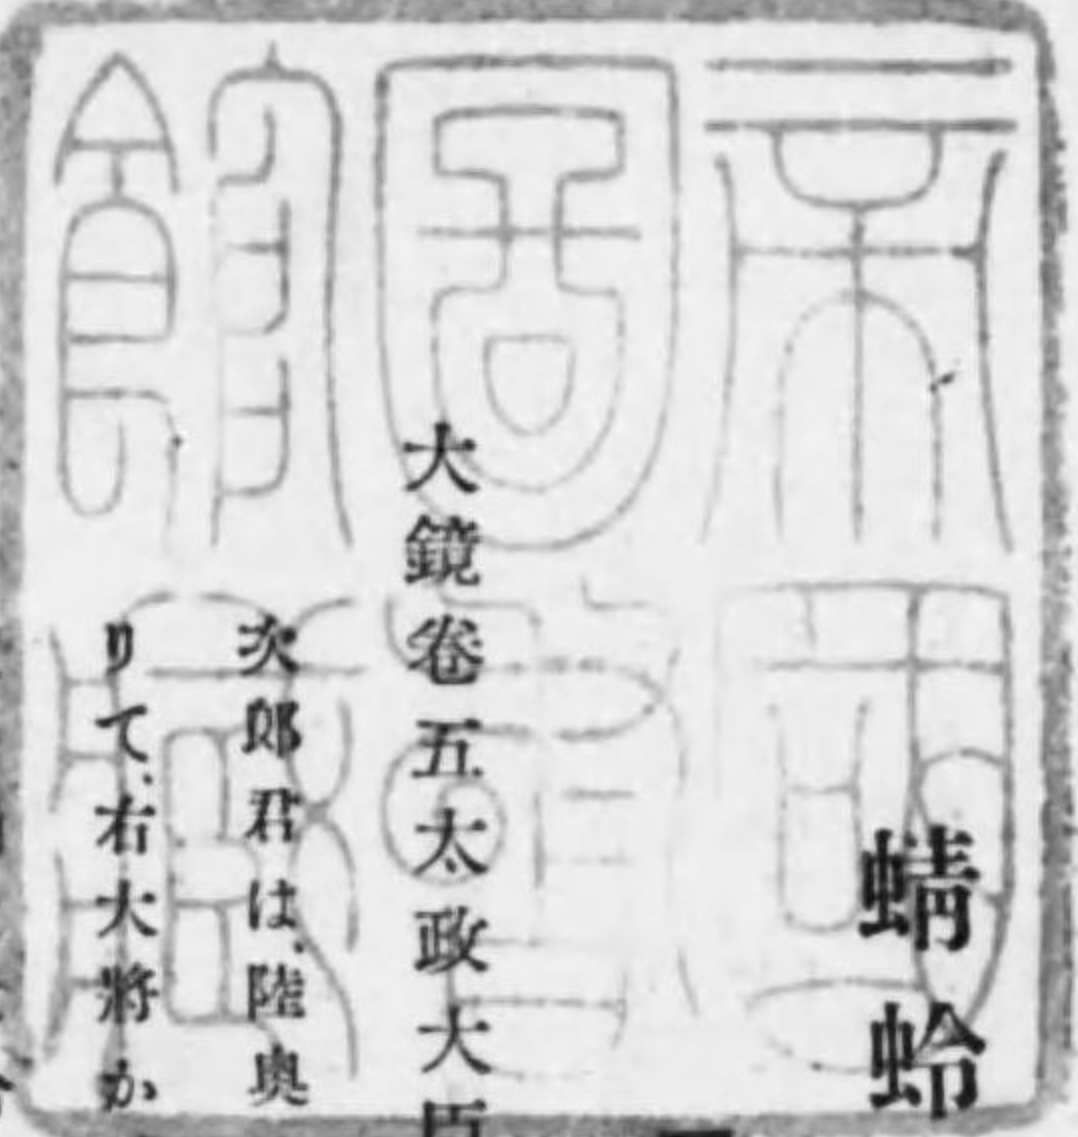 帝國
圖書
館藏
蜻蛉
大鏡卷五太政大臣
次郎君は、陸奥
りて、右大將か